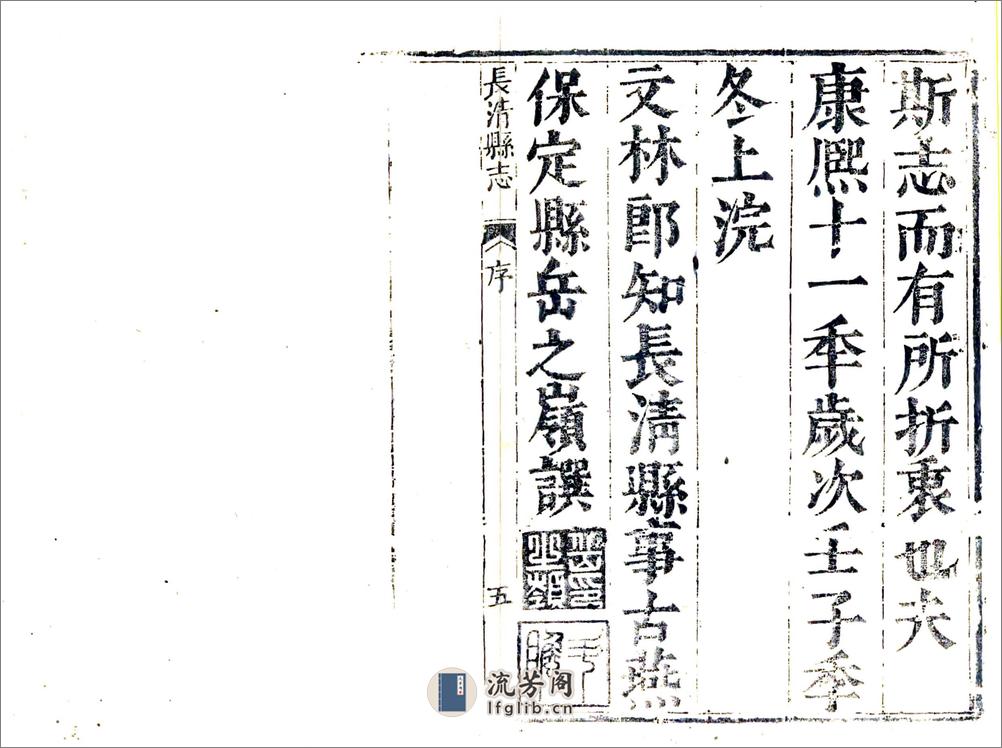 斯志而有所折衷也夫
康熙十一年歲次壬子季
冬上浣
文林郎知長淸縣事古燕
保定縣岳之嶺譔
長清縣志
序
五
流芳阁
lfglib.cn